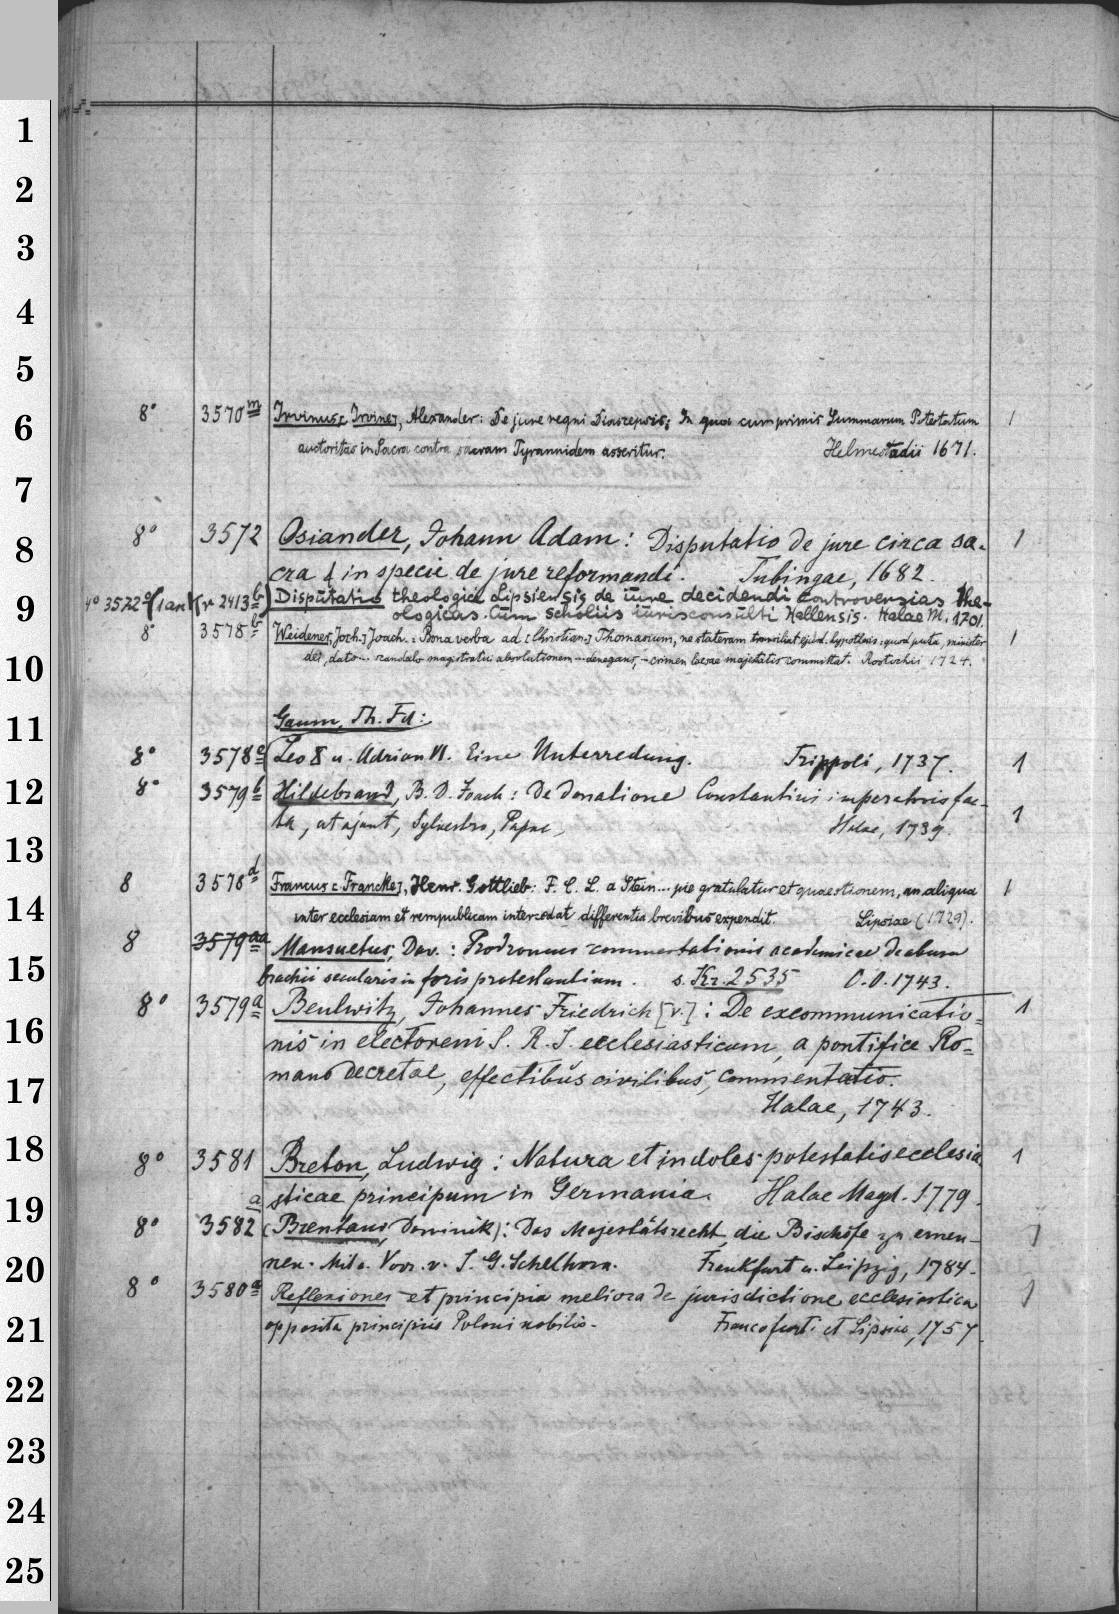 1
2
3
4
5
6
7
8
9
10
11
12
13
14
15
16
17
18
19
20
21
22
23
24
25
8° 3570m Irvinus [Irvine], Alexander: De jure regni; In quo cum primis Summarum Potestatum 1
auctoritas in Sacra contra sacram Tyrannidem asseritur. Helmestadii 1671.
8° 3572 Osiander, Johann Adam: Disputatio de jure circa sa- 1
cra & in specie de jure reformandi. Tubingae, 1682.
4° 3572 (an Kr 2413b) Disputatio theologica Lipsiensis de iure decidendi controversias the-
ologicas. Cum scholiis iurisconsulti Hallensis. Halae M. 1701.
8° 3578b Weidener, Joach.: Bona verba ad [Christian] Thomasium, ne staturam ejusd. hypothesis: quod puta, minister 1
dei, dato scandalo magistratui absolutionem denegans, crimen laesae majestatis committat. Rostochii 1724.
Gaum, Th. Fd.:
8° 3578c (Leo X u. Adrian VI. Eine Unterredung. Trippoli, 1737. 1
8° 3579b Hildebrand, B. D. Joach: De donatione Constantini imperatoris fac-
ta, ut ajunt, Sylvestro, Papae, Halae, 1739. 1
8 3578d Francus [Francke], Henr. Gottlieb: F. C. L. a Stein... pie gratulatur et quaestionem, an aliqua 1
inter ecclesiam et rempublicam intercedat differentia brevibus expendit. Lipsiae (1729).
8 3579aa Mansuetus, Dav.: Prodromus commentationis academicae de abusu
brachii secularis in foris protestantium. s. Kr. 2535 O.O. 1743.
8° 3579a Beulwitz, Johannes Friedrich [v.]: De excommunicatio- 1
nis in electorem S. R. I. ecclesiasticum, a pontifice Ro-
mano decretae, effectibus civilibus, commentatio.
Halae, 1743.
8° 3581 Breton, Ludwig: Natura et indoles potestatis ecclesia 1
sticae principum in Germania. Halae Magd. 1779.
8° 3582a (Brentano, Dominik): Das Majestätsrecht, die Bischöfe zu ernen- 1
nen. Mit e. Vorr. v. J. G. Schelhorn. Frankfurt u. Leipzig, 1784.
8° 3580a Reflexiones et principia meliora de jurisdictione ecclesiastica 1
opposita principiis Poloni nobilis. Francofurti et Lipsiae, 1757